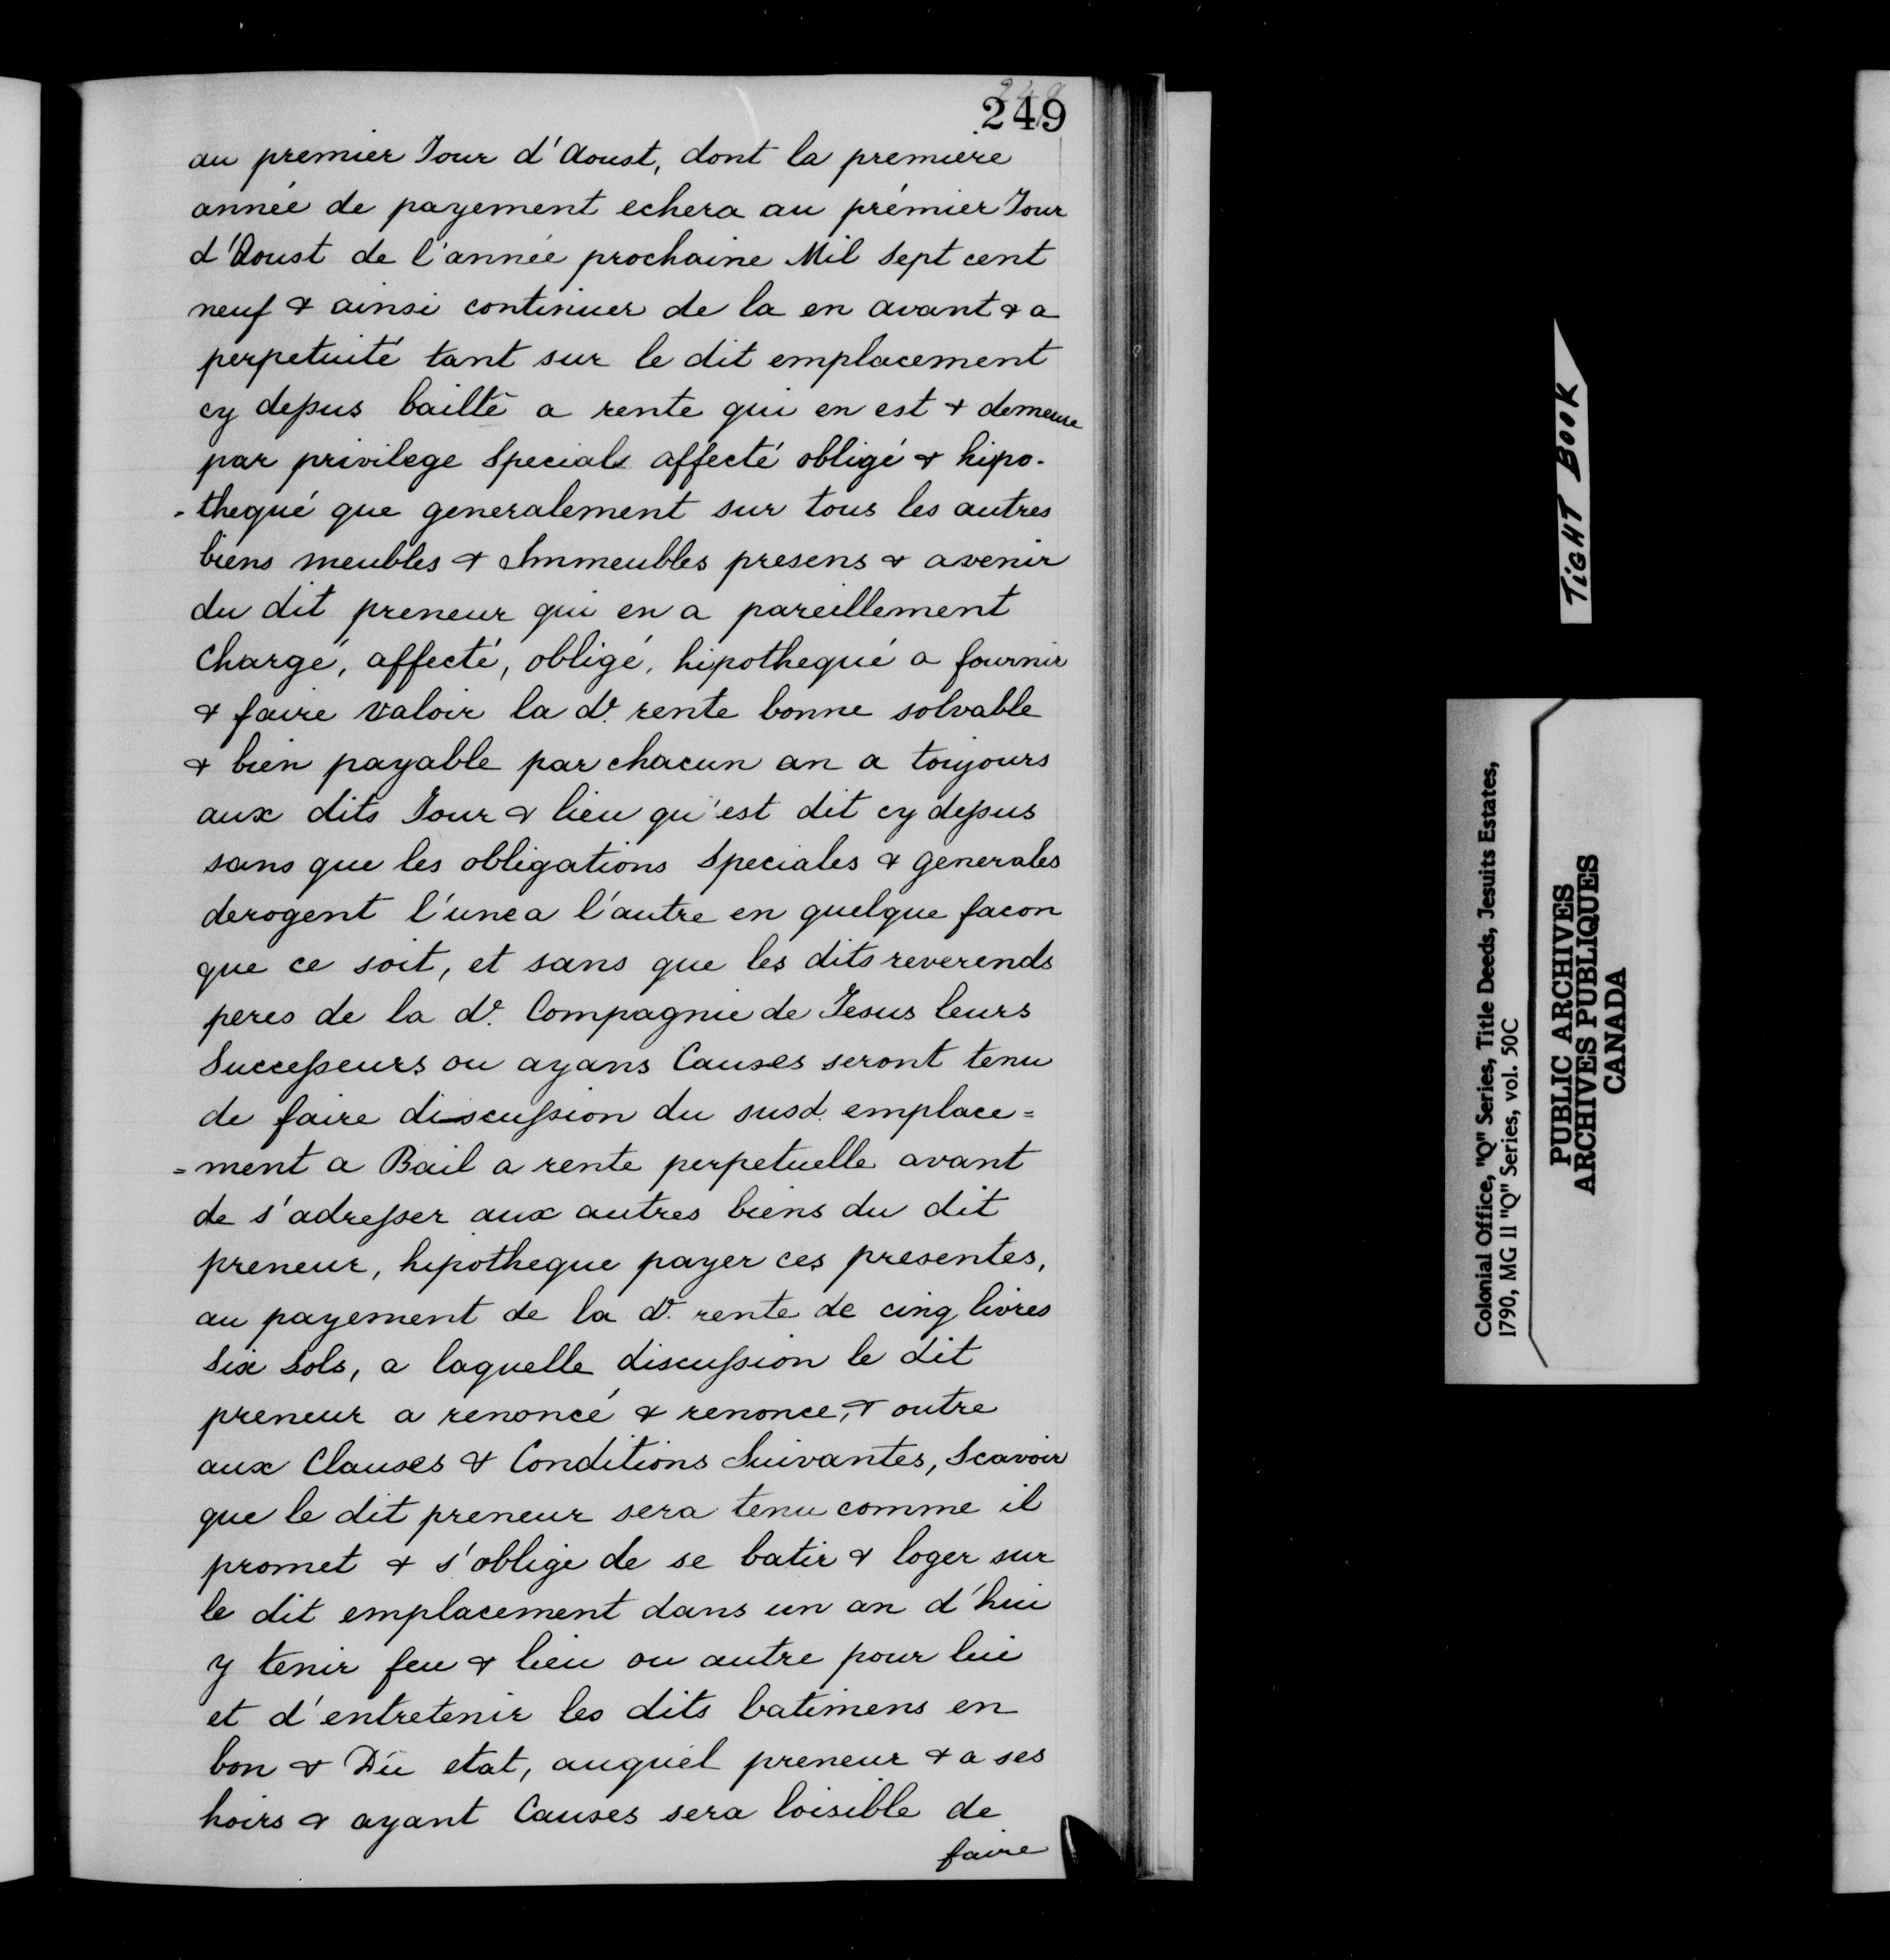 249
au premier Jour d'Aoust, dont la premiere
année de payement echera au prémier Jour
d'Aoust de l'année prochaine Mil Sept cent
neuf & ainsi continuer de la en avant & a
perpetuité tant sur le dit emplacement
cy dessus baillé a rente qui en est & demeure
par privilege Special affecté obligé & hipo-
-thequé que generalement sur tous les autres
biens meubles & Immeubles presens & avenir
du dit preneur qui en a pareillement
Chargé, affecté, obligé, hipothequé a fournir
& faire valoir la de. rente bonne solvable
& bien payable par chacun an a toujours
aux dits Jour & lieu qu'est dit cy dessus
sans que les obligations Speciales & generales
derogent l'une a l'autre en quelque facon
que ce soit, et sans que les dits reverends
peres de la de. Compagnie de Jesus leurs
Successeurs ou ayans Causes seront tenu
de faire discussion du susd. emplace=
=ment a Bail a rente perpetuelle avant
de s'adresser aux autres biens du dit
preneur, hipotheque payer ces presentes,
au payement de la de. rente de cinq livres
Six Sols, a laquelle discussion le dit
preneur a renoncé & renonce, & outre
aux Clauses & Conditions Suivantes, Scavoir
que le dit preneur sera tenu comme il
promet & s'oblige de se batir & loger sur
le dit emplacement dans un an d'hui
y tenir feu & lieu ou autre pour lui
et d'entretenir les dits batimens en
bon & Dû etat, auquel preneur & a ses
hoirs & ayant Causes sera loisible de
faire
TIGHT BOOK
Colonial Office, "Q" Series, Title Deeds, Jesuits Estates,
1790, MG 11 "Q" Series, vol. 50C
PUBLIC ARCHIVES
ARCHIVES PUBLIQUES
CANADA